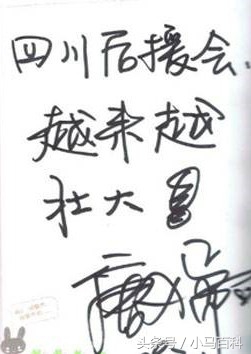 四川后援会
越来越
壮大
头条号 / 小马百科